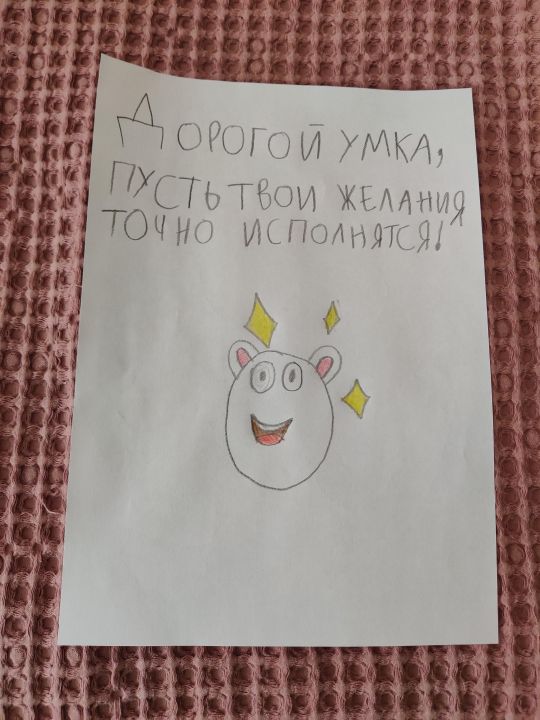 ДОРОГОЙ УМКА,
ПУСТЬ ТВОИ ЖЕЛАНИЯ
ТОЧНО ИСПОЛНЯТСЯ!